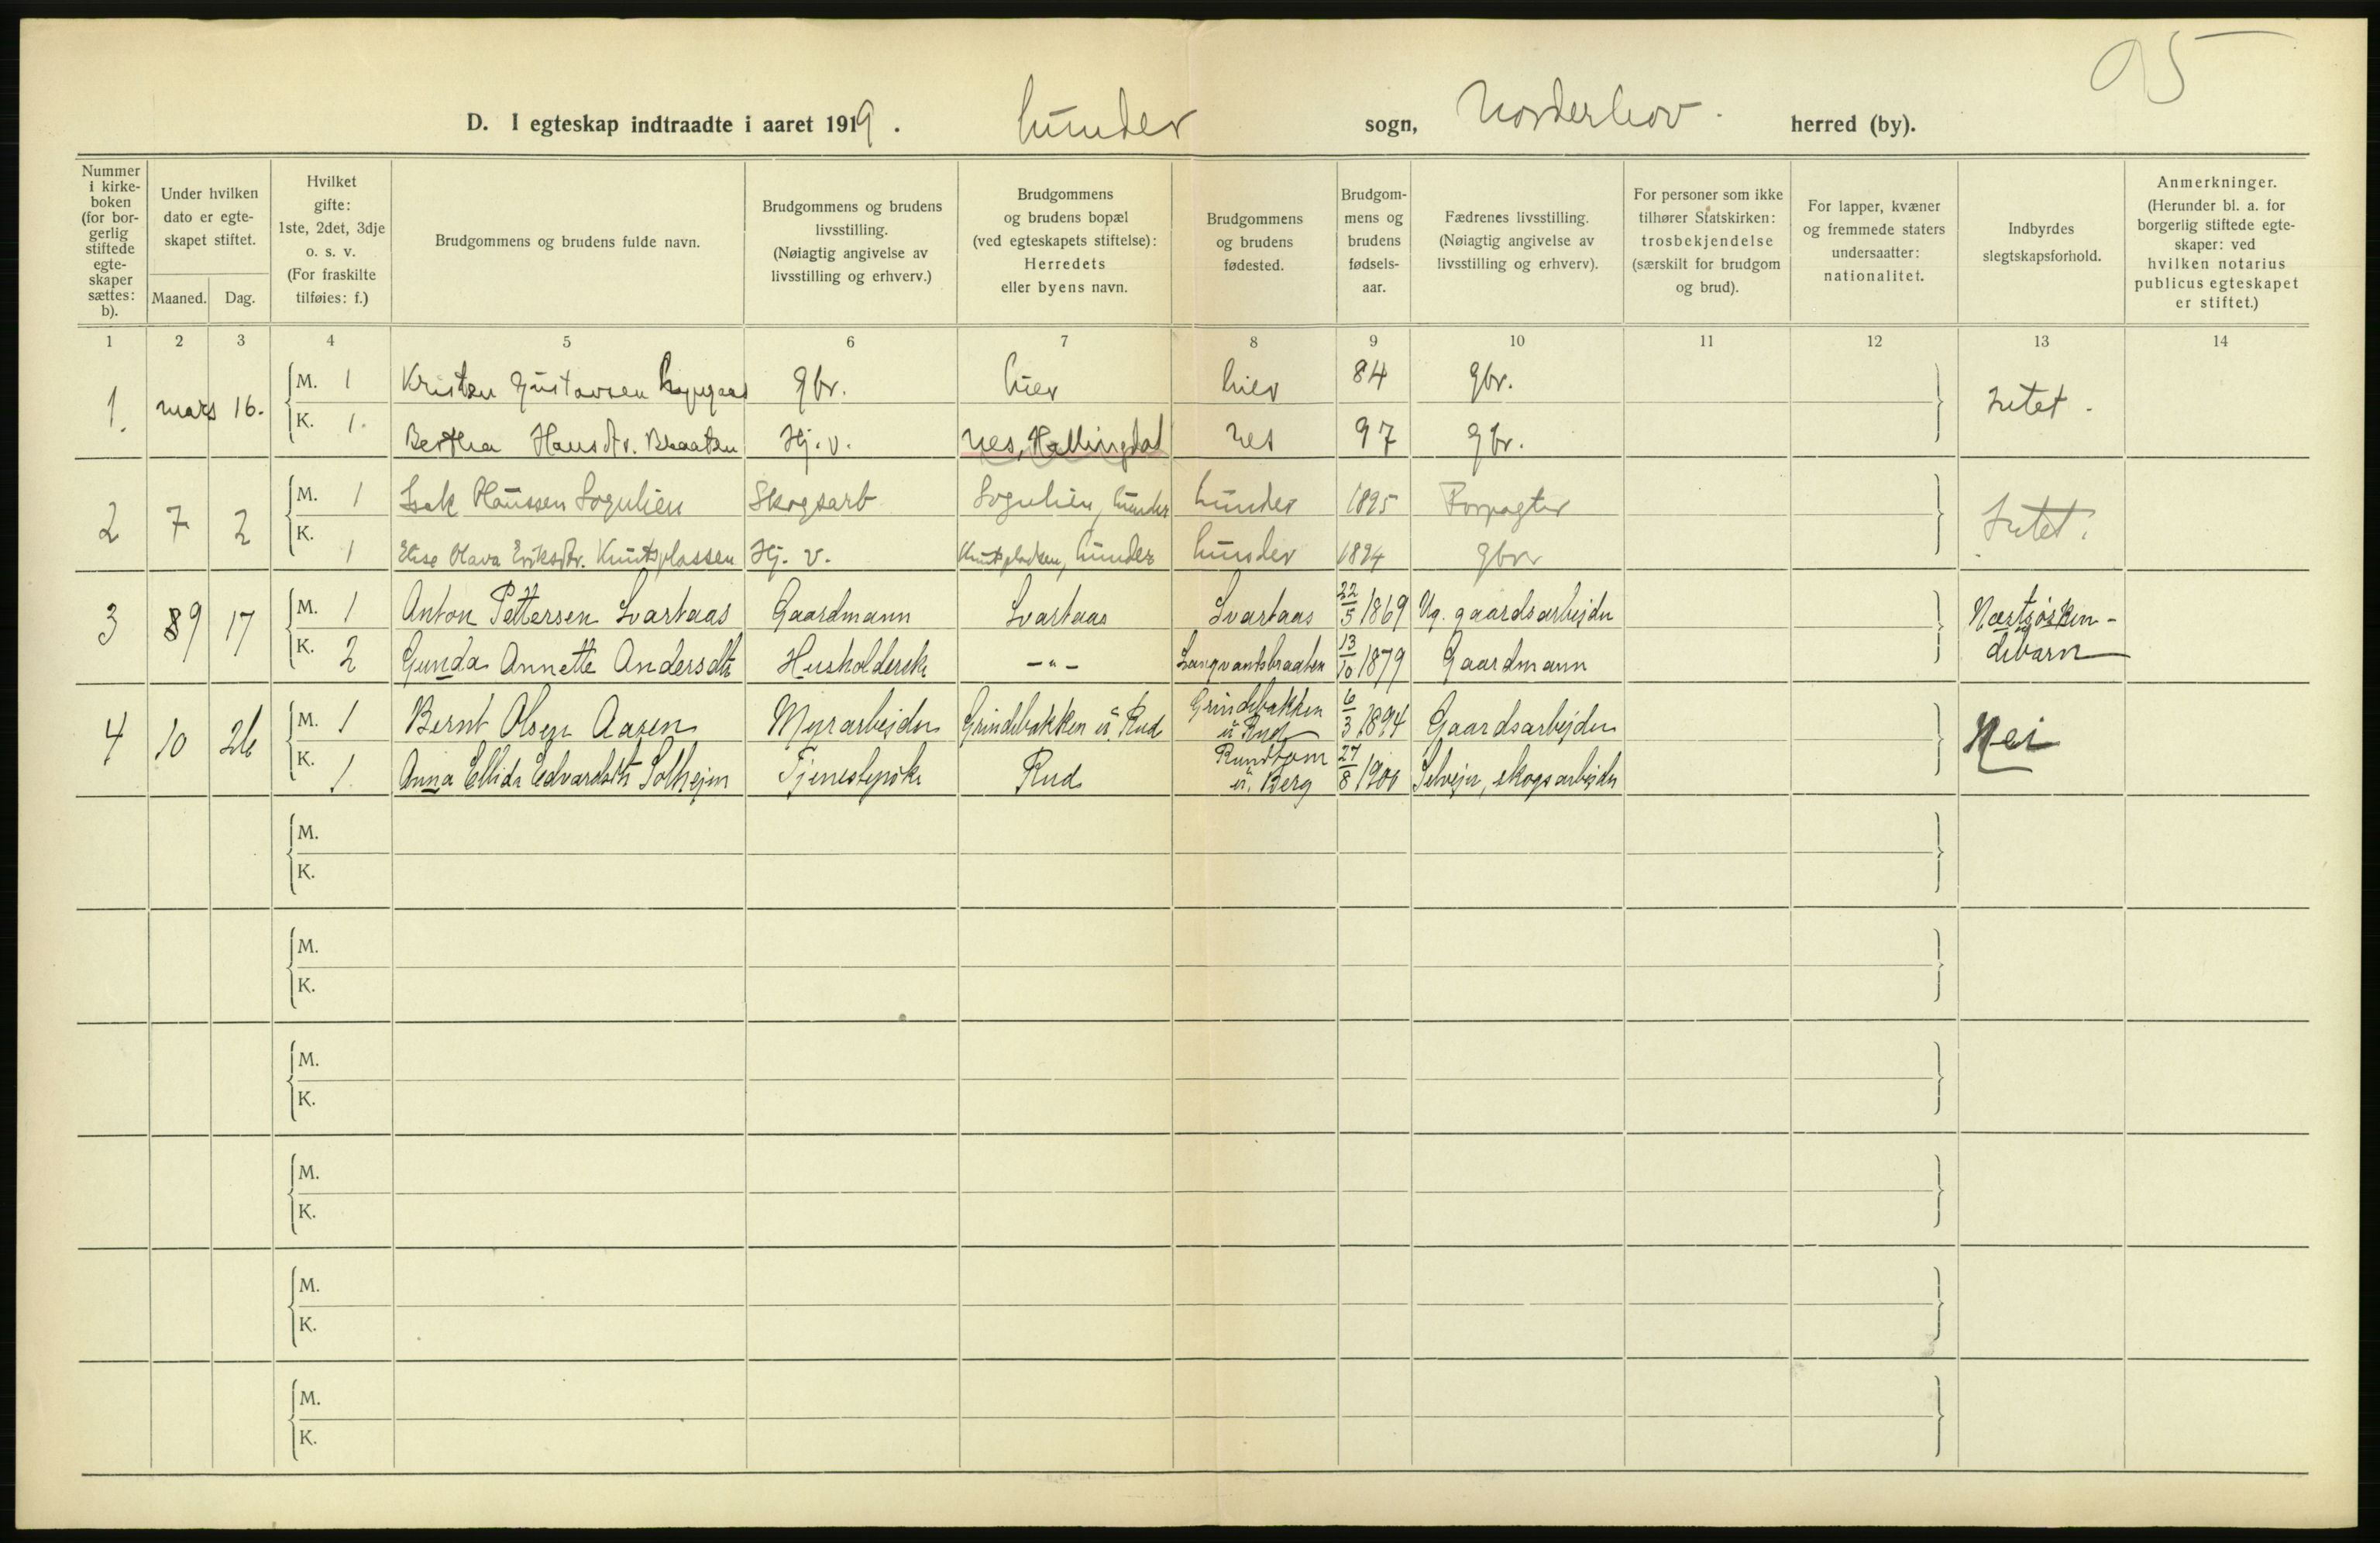 95
D. I egteskap indtraadte i aaret 1919. Lunder sogn, Norderhov herred (by).
Nummer i kirkeboken (for borgerlig stiftede egteskaper sættes: b).
Under hvilken dato er egteskapet stiftet.
Maaned. Dag.
Hvilket gifte: 1ste, 2det, 3dje o. s. v. (For fraskilte tilføies: f.)
Brudgommens og brudens fulde navn.
Brudgommens og brudens livsstilling. (Nøiagtig angivelse av livsstilling og erhverv.)
Brudgommens og brudens bopæl (ved egteskapets stiftelse): Herredets eller byens navn.
Brudgommens og brudens fødested.
Brudgommens og brudens fødselsaar.
Fædrenes livsstilling. (Nøiagtig angivelse av livsstilling og erhverv).
For personer som ikke tilhører Statskirken: trosbekjendelse (særskilt for brudgom og brud).
For lapper, kvæner og fremmede staters undersaatter: nationalitet.
Indbyrdes slegtskapsforhold.
Anmerkninger. (Herunder bl. a. for borgerlig stiftede egteskaper: ved hvilken notarius publicus egteskapet er stiftet.)
1 2 3 4 5 6 7 8 9 10 11 12 13 14
1. mars 16. M. 1 Kristen Gustavsen gbr. her her 84 gbr. Intet.
K. 1. Bertha Hansdtr. Braaten Hj. v. Nes, Hallingdal Nes 97 gbr.
2 7 2 M. 1 Isak Hanssen Sognlien Skogsarb Sognlien, Lunder Lunder 1895 Forpagter Intet.
K. 1 Elise Olava Eriksdtr. Knutsplassen Hj. v. Knutspladsen, Lunder Lunder 1894 gbr
3 89 17 M. 1 Anton Pettersen Svartaas Gaardmann Svartaas Svartaas 22/5 1869 Ug. gaardsarbejder Næstsøsken-
K. 2 Gunda Annette Andersdtr Husholderske -"- Langvandsbraaten 13/10 1879 Gaardmann debarn
4 10 26 M. 1 Bernt Olsen Aasen Myrarbejder Grindebakken u. Rud Grindebakken u. Rud 6/3 1894 Gaardsarbejder Nei
K. 1 Anna Ellida Edvardsdtr Solhejm Tjenestepike Rud Rundtom u. Berg 27/8 1900 Selvejer, skogsarbejder
M.
K.
M.
K.
M.
K.
M.
K.
M.
K.
M.
K.